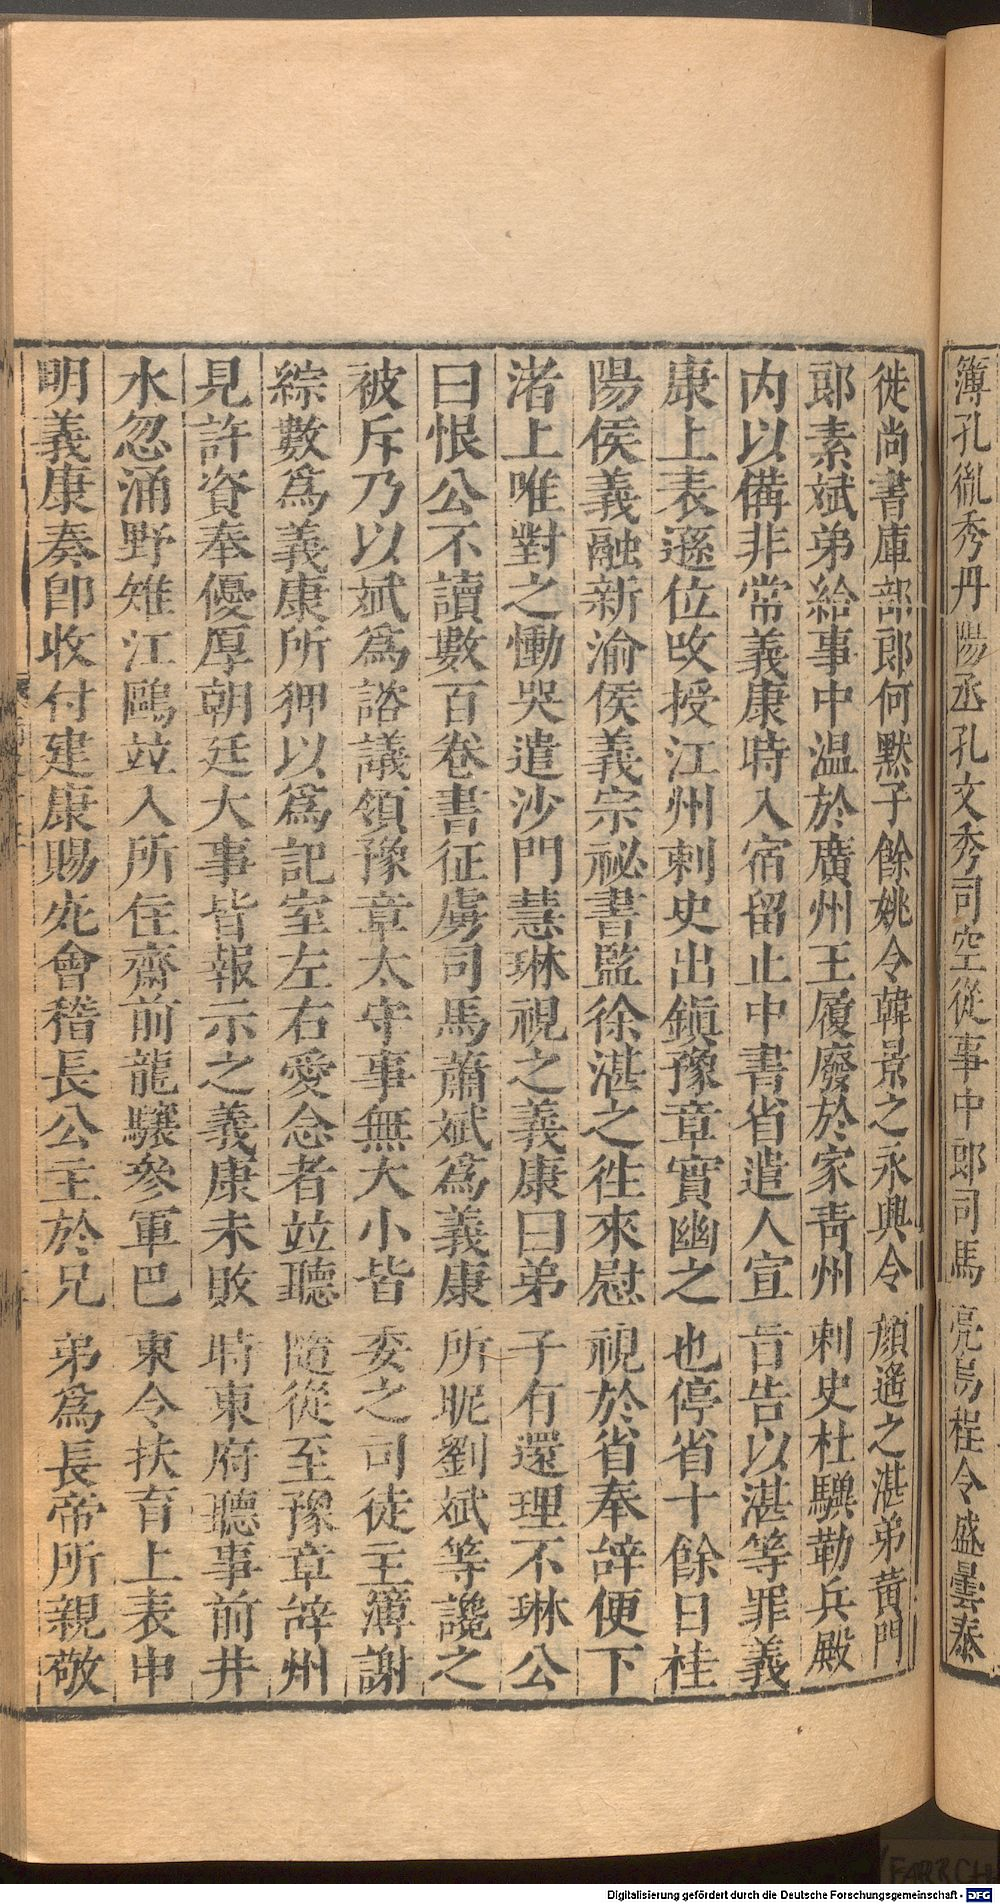 簿孔胤秀丹陽丞孔文秀司空從事中郎司馬亮烏程令盛曇泰
徙尚書庫部郎何默子餘姚令韓景之永興令顏遙之湛弟黃門
郎素斌弟給事中温於廣州王履廢於家靑州刺史杜驥勒兵殿
内以備非常義康時入宿留止中書省遣人宣旨告以湛等罪義
康上表遜位改授江州刺史出鎭豫章實幽之也停省十餘日桂
陽侯義融新渝侯義宗祕書監徐湛之徃來慰視於省奉辭便下
渚上唯對之慟哭遣沙門慧琳視之義康曰弟子有還理不琳公
曰恨公不讀數百卷書征虜司馬蕭斌爲義康所昵劉斌等讒之
被斥乃以斌爲諮議領豫章太守事無大小皆委之司徒主簿謝
綜數爲義康所狎以爲記室左右愛念者竝聽隨從至豫章辭州
見許資奉優厚朝廷大事皆報示之義康未敗時東府聽事前井
水忽涌野雉江鷗竝入所住齋前龍驤參軍巴東令扶育上表申
明義康奏卽收付建康賜死會稽長公主於兄弟爲長帝所親敬
Digitalisierung gefördert durch die Deutsche Forschungsgemeinschaft - DFG